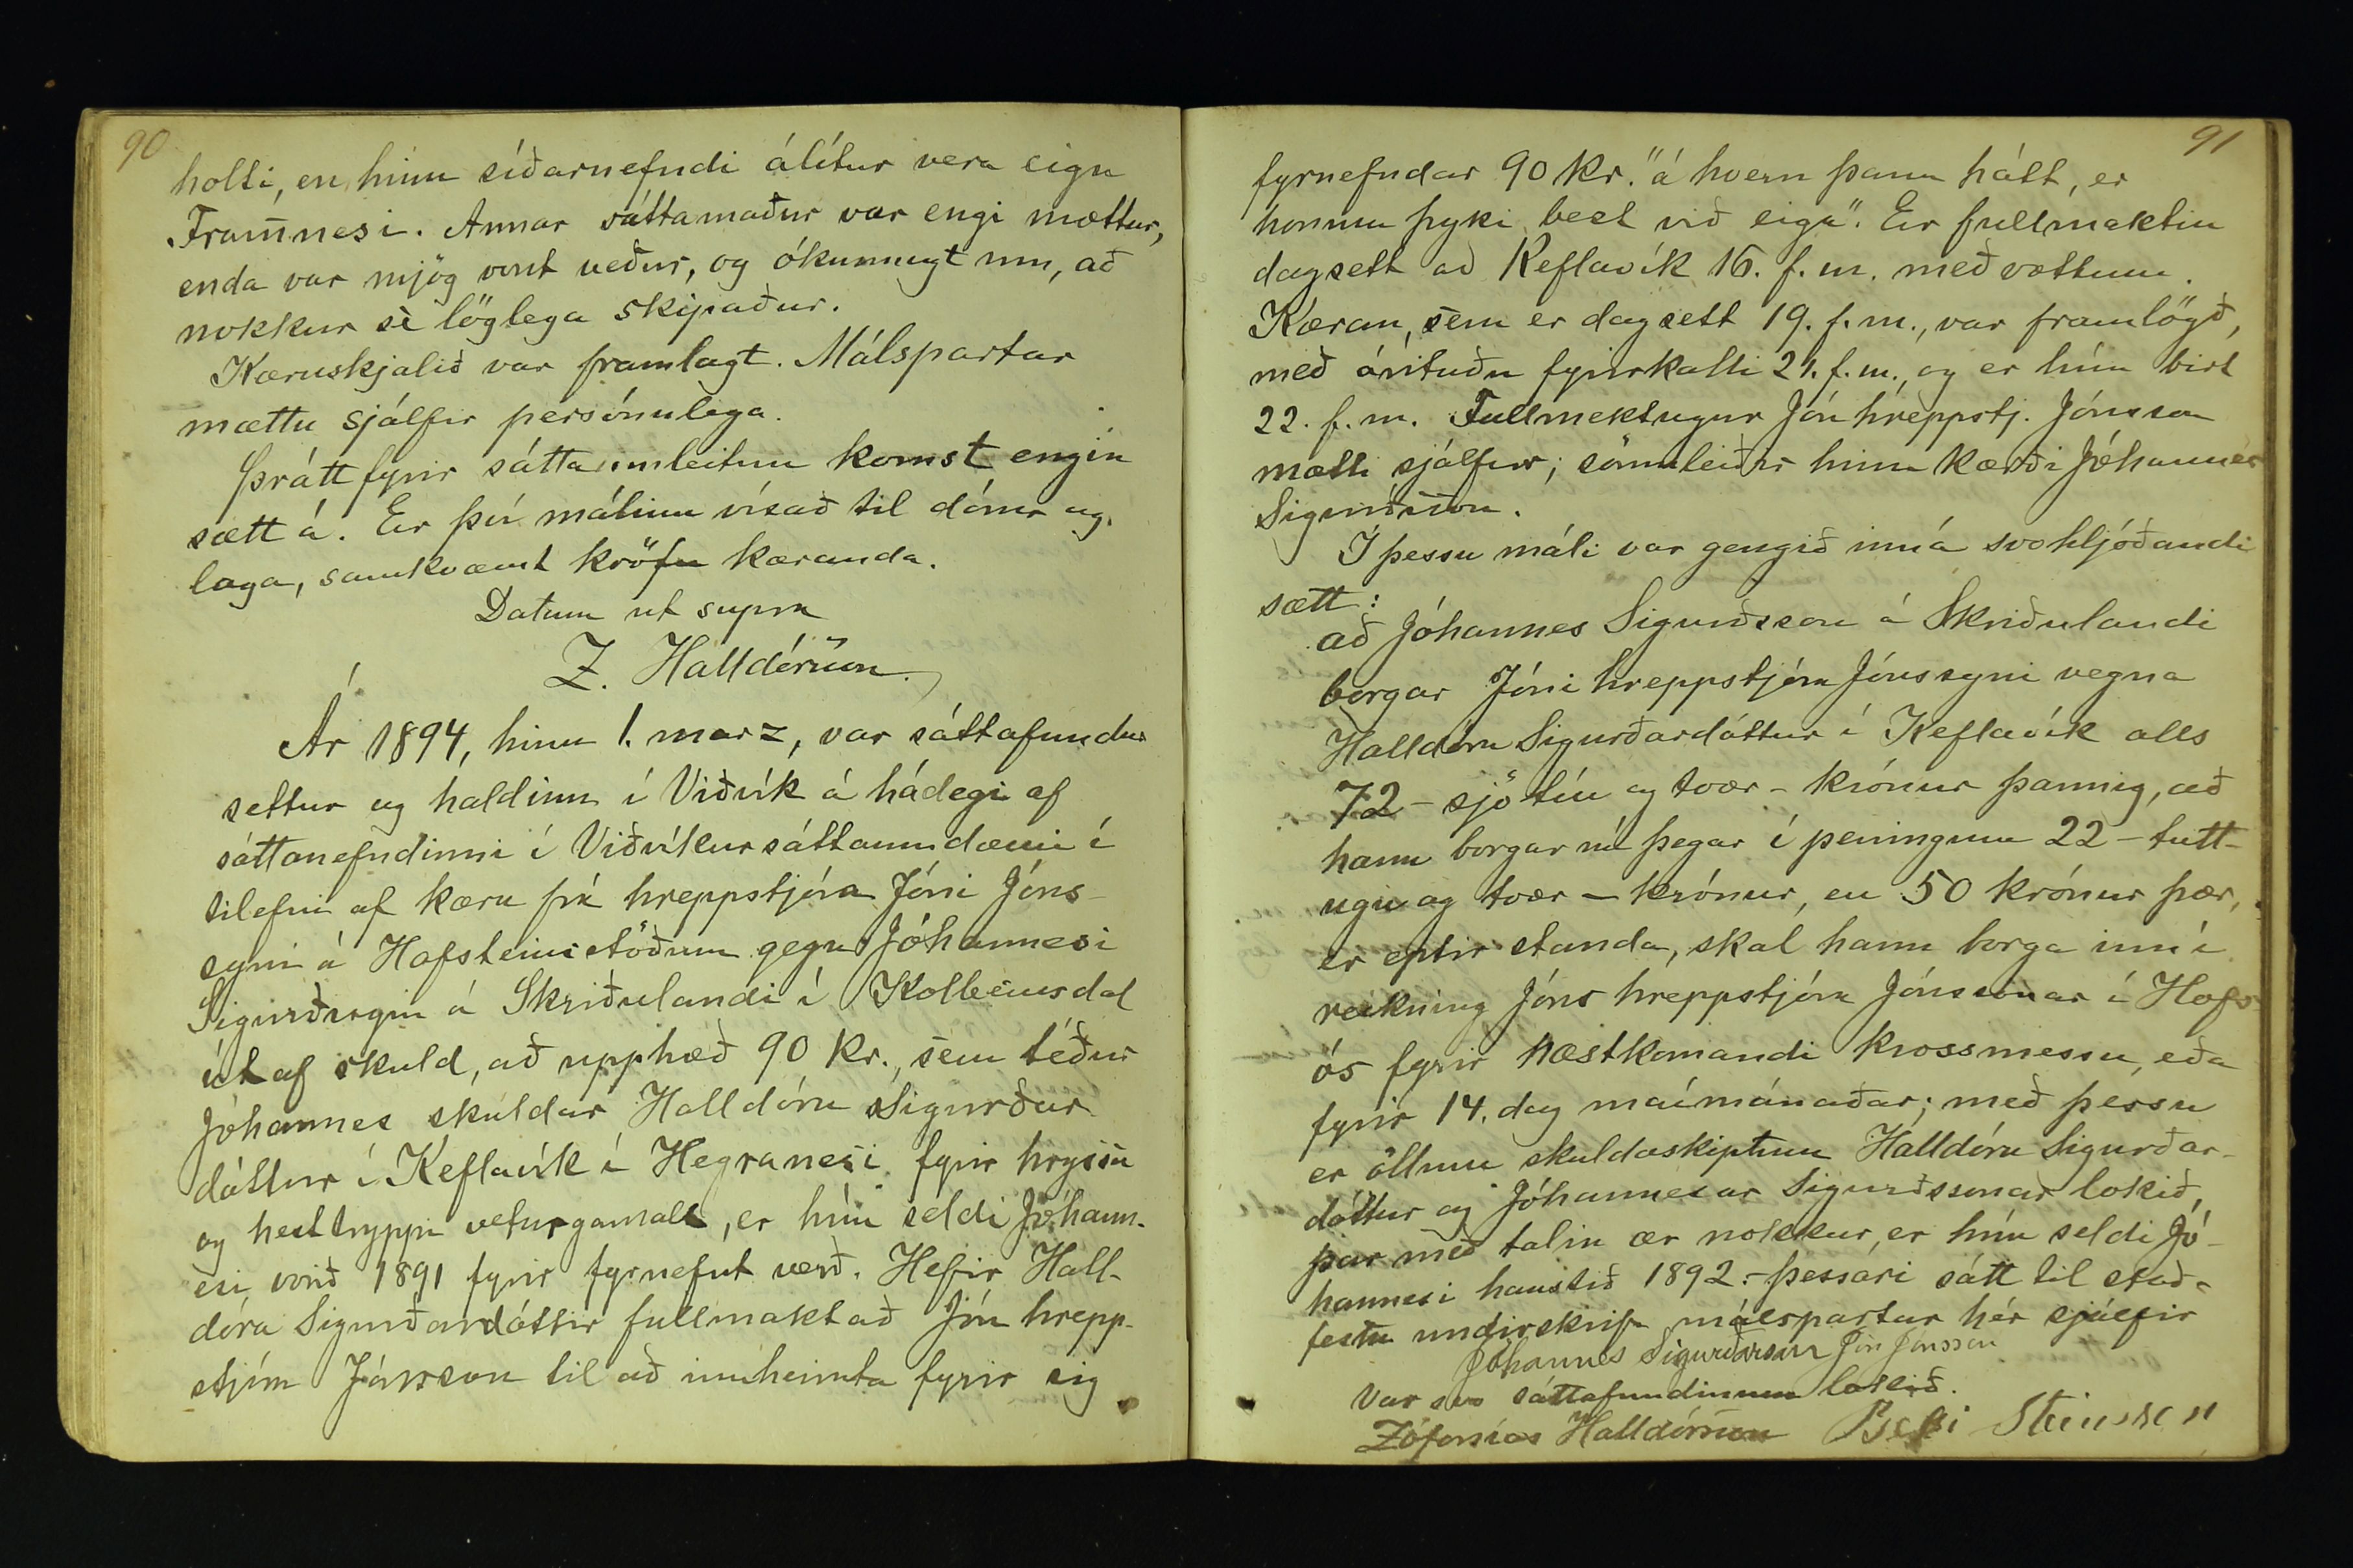 90
holti, en hinn síðarnefndi álítur vera eign
Framnesi. Annar sáttamaður var engi mættur,
enda var mjög vont veður, og ókunnugt um, að
nokkur sè löglega skipaður.
Kæruskjalið var framlagt. Málspartar
mættu sjálfir persónulega.
Þrátt fyrir sáttaumleitun komst engin
sætt á. Er því málinu vísað til dóms og
laga, samkvæmt kröfu kæranda.
Datum ut supra
Z. Halldórsson.
Ár 1894, hinn 1. marz, var sáttafundur
settur og haldinn í Viðvík á hádegi af
sáttanefndinni í Viðvíkursáttaumdæmi í
tilefni af kæru frá hreppstjóra Jóni Jóns-
syni á Hafsteinsstöðum gegn Jóhannesi
Sigurðssyni á Skriðulandi í Kolbeinsdal
út af skuld, að upphæð 90 kr., sem téður
Jóhannes skuldar Halldóru Sigurðar
dóttur í Keflavík í Hegranesi fyrir hryssu
og hesttryppi veturgamalt, er hún seldi Jóhann-
esi vorið 1891 fyrir fyrnefnt verð. Hefir Hall-
dóra Sigurðardóttir fullmaktað Jón hrepp-
stjóra Jónsson til að innheimta fyrir sig
91
fyrnefndar 90 kr. "á hvern þann hátt, er
honum þyki best við eiga". Er fullmaktin
dagsett að Keflavík 16. f. m. með vottum.
Kæran, sem er dagsett 19. f. m., var framlögð,
með árituðu fyrirkalli 21. f. m., og er hún birt
22. f. m. Fullmektugur Jón hreppstj. Jónsson
mætti sjálfur; sömuleiðis hinn kærði Jóhannes
Sigurðsson.
Í þessu máli var gengið inná svohljóðandi
sætt:
að Jóhannes Sigurðsson á Skriðulandi
borgar Jóni hreppstjóra Jónssyni vegna
Halldóru Sigurðardóttur í Keflavík alls
72 - sjötíu og tvær - krónur þannig, að
hann borgar nú þegar í peningum 22 - tutt-
ugu og tvær - krónur, en 50 krónur þær,
er eptir standa, skal hann borga inn í
reikning Jóns hreppstjóra Jónssonar í Hofs-
ós fyrir næstkomandi krossmessu, eða
fyrir 14. dag maímánaðar; með þessu
er öllum skuldaskiptum Halldóru Sigurðar-
dóttur og Jóhannesar Sigurðssonar lokið,
þar með talin ær nokkur, er hún seldi Jó-
hannesi haustið 1892. - Þessari sátt til stað-
festu undirskrifa málspartar hér sjálfir
Jóhannes Sigurðarson Jón Jónsson
Var svo sáttafundinum lokið.
Zófonías Halldórsson Bessi Steinsson